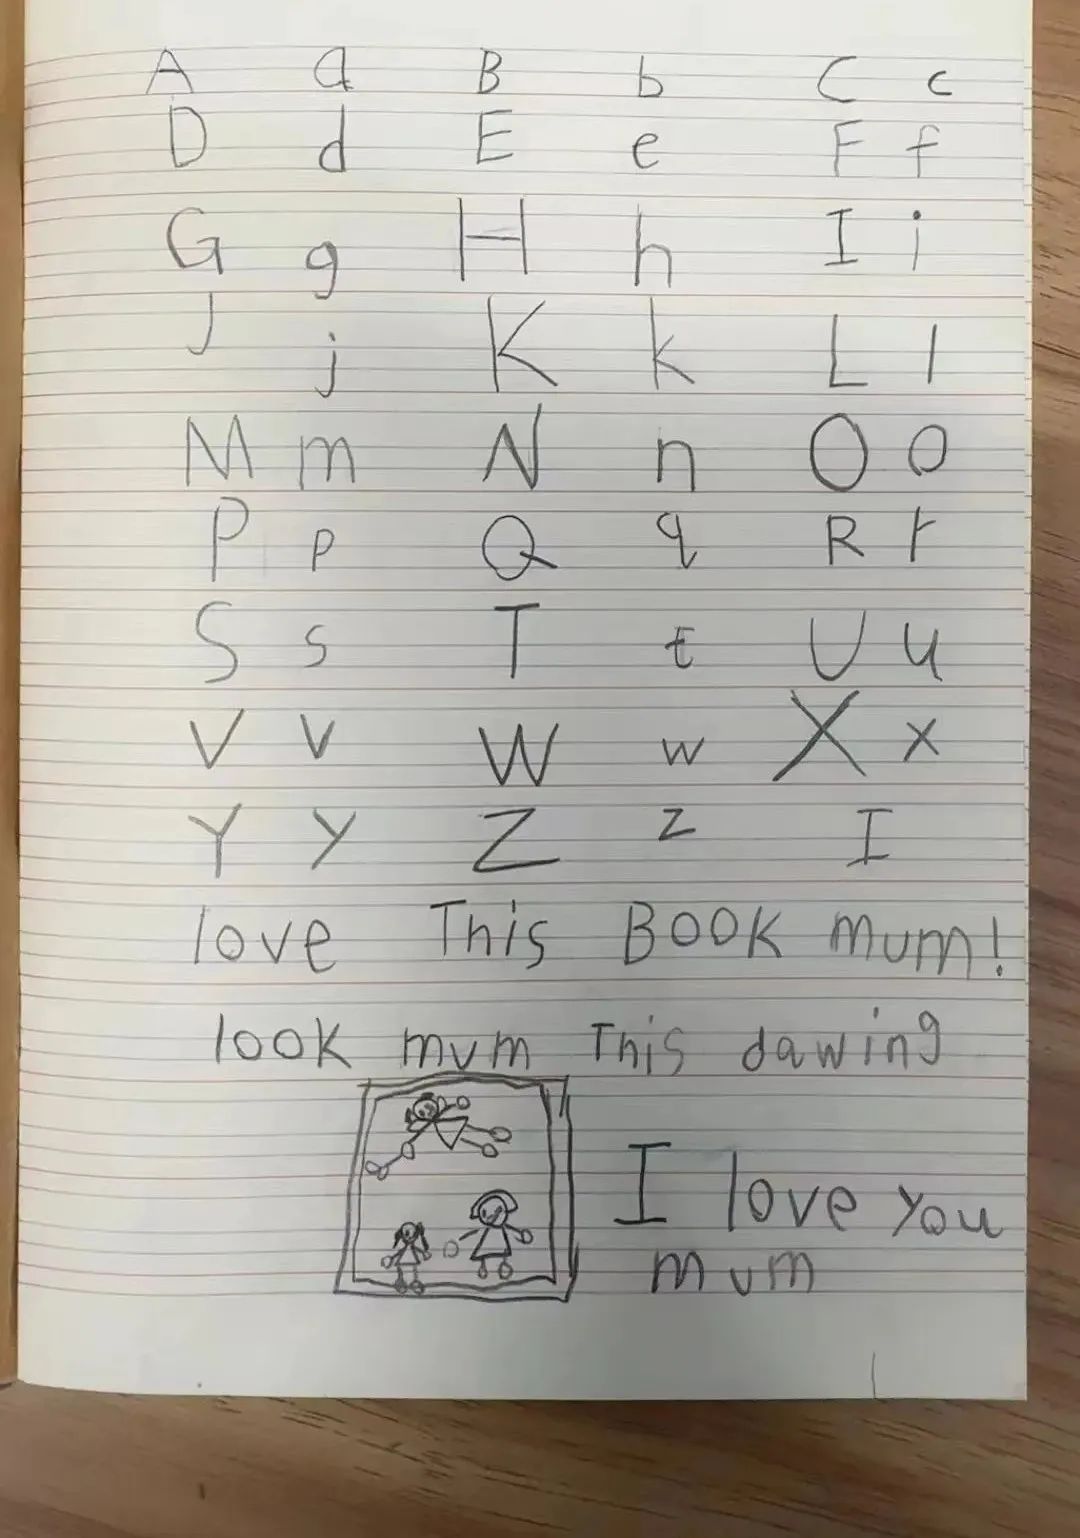 A a B b C c
D d E e F f
G g H h I i
J j K k L l
M m N n O o
P p Q q R r
S s T t U u
V v W w X x
Y y Z z I
love This BOOK mum!
look mum This dawing
I love you
mum